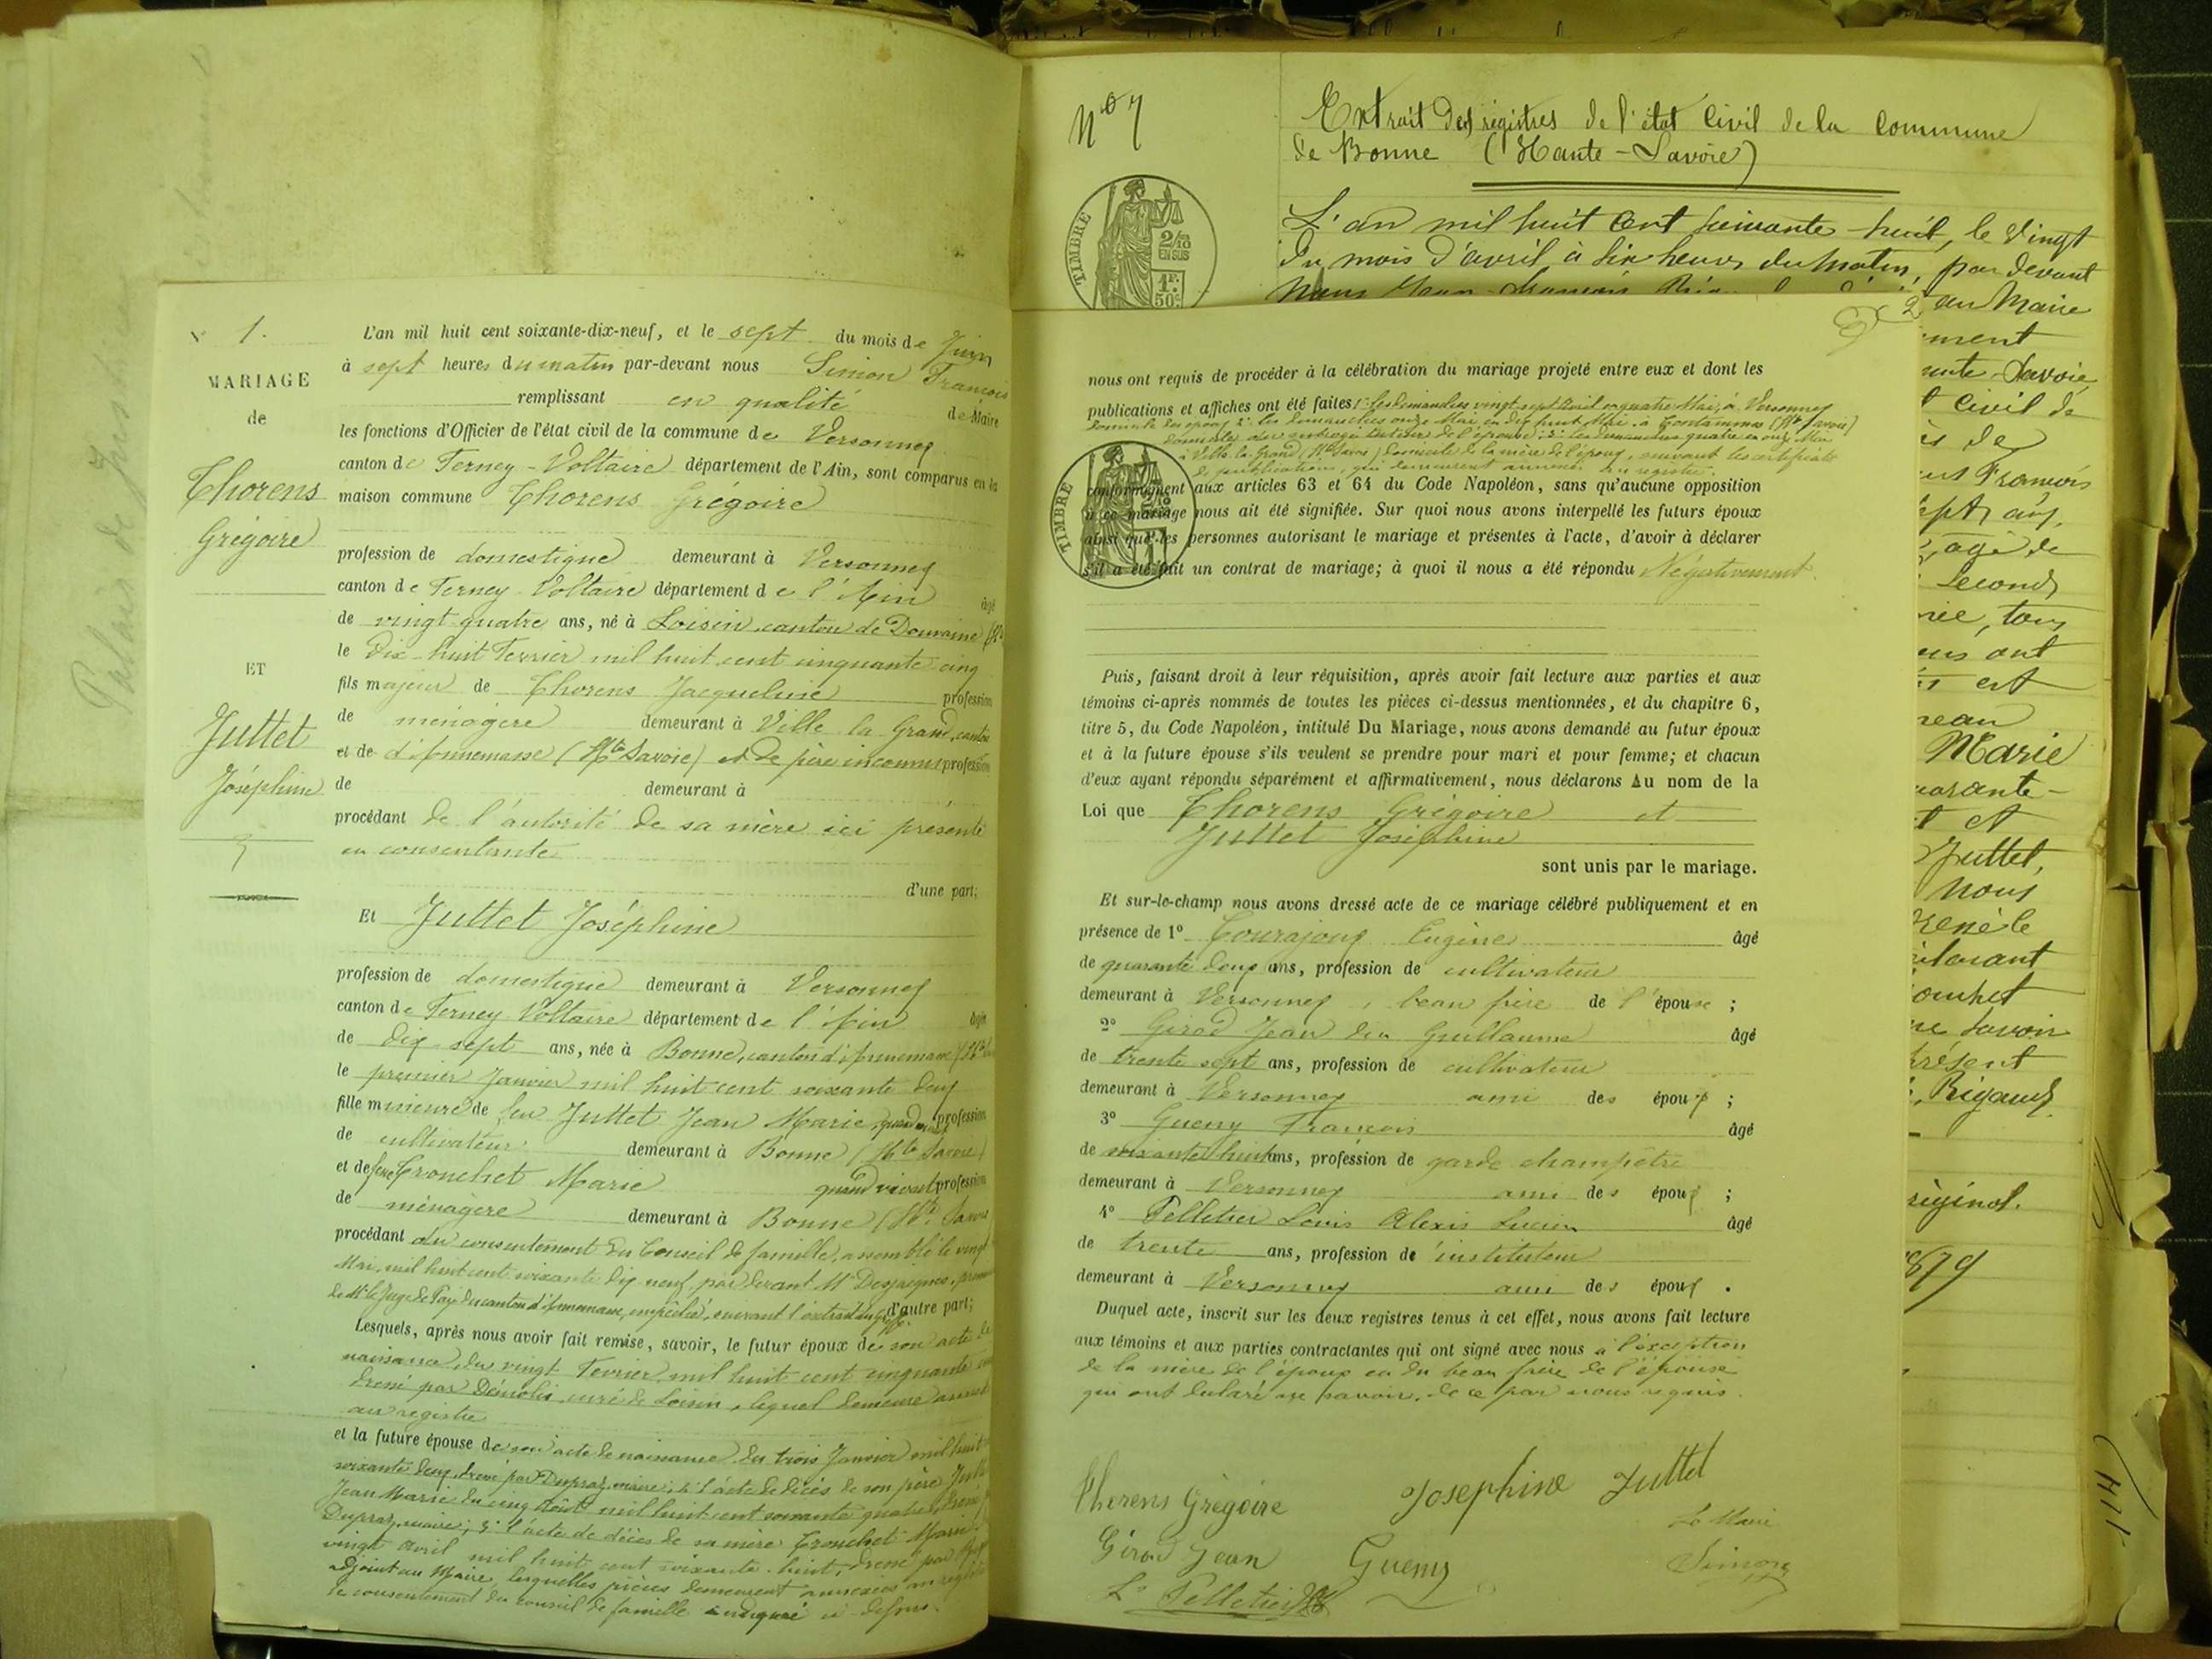 N° 1.
MARIAGE
de
Thorens
Grégoire
ET
Juttet
Joséphine
L'an mil huit cent soixante-dix-neuf, et le sept du mois de Juin
à sept heures du matin par-devant nous Simon François
remplissant en qualité de Maire
les fonctions d'Officier de l'état civil de la commune de Versonnex
canton de Ferney-Voltaire département de l'Ain, sont comparus en la
maison commune Thorens Grégoire
profession de domestique demeurant à Versonnex
canton de Ferney Voltaire département de l'Ain âgé
de vingt quatre ans, né à Loisin, canton de Douvaine
le dix-huit Fevrier mil huit cent cinquante cinq
fils majeur de Thorens Jacqueline profession
de ménagère demeurant à Ville la Grand, canton
et de d'Annemasse (Hte Savoie) et de père inconnu profession
de demeurant à
procédant de l'autorité de sa mère ici présente
et consentante
d'une part;
Et Juttet Joséphine
profession de domestique demeurant à Versonnex
canton de Ferney Voltaire département de l'Ain âgée
de dix-sept ans, née à Bonne, canton d'Annemasse
le premier Janvier mil huit cent soixante deux
fille mineure de feu Juttet Jean Marie, quand vivait profession
de cultivateur demeurant à Bonne (Hte Savoie)
et de feue Cronchet Marie quand vivait profession
de ménagère demeurant à Bonne (Hte Savoie
procédant du consentement du Conseil de famille, assemblé le vingt
Mai, mil huit cent soixante dix neuf, par devant Mr Desjaques,
de Mr le Juge de Paix du canton d'Annemasse, empêché, suivant l'extrait d'autre part;
Lesquels, après nous avoir fait remise, savoir, le futur époux de son acte de
naissance du vingt Fevrier mil huit cent cinquante
dressé par Démolis, curé de Loisin, lequel demeure annexé
au registre
et la future épouse de son acte de naissance du trois Janvier mil huit
soixante deux, dressé par Dupraz, maire; 2° l'acte de décès de son père
Jean Marie du cinq Août mil huit cent soixante quatre, dressé
Dupraz, maire; 3° l'acte de décès de sa mère Cronchet Marie
vingt avril mil huit cent soixante-huit, dressé par
adjoint au Maire, lesquelles pièces demeurent annexées au registre
le consentement du conseil de famille indiqué ci-dessus.
N° 7
Extrait des régistres de l'état Civil de la Commune
de Bonne (Haute-Savoie)
L'an mil huit Cent soixante-huit, le vingt
du mois d'avril, à dix heures du matin, par devant
TIMBRE
2/10
EN SUS
1F.
50c
nous ont requis de procéder à la célébration du mariage projeté entre eux et dont les
publications et affiches ont été faites 1° les dimanches vingt sept Avril et quatre Mai, à Versonnex
domicile des époux 2° les dimanches onze Mai et dix huit Mai à Contamines (Hte Savoie)
à Ville-la-Grand (Hte Savoie) domicile de la mère de l'époux, suivant les certificats
de publication, qui demeurent annexés au registre.
conformément aux articles 63 et 64 du Code Napoléon, sans qu'aucune opposition
à ce mariage nous ait été signifiée. Sur quoi nous avons interpellé les futurs époux
ainsi que les personnes autorisant le mariage et présentes à l'acte, d'avoir à déclarer
s'il a été fait un contrat de mariage; à quoi il nous a été répondu Négativement.
TIMBRE
Puis, faisant droit à leur réquisition, après avoir fait lecture aux parties et aux
témoins ci-après nommés de toutes les pièces ci-dessus mentionnées, et du chapitre 6,
titre 5, du Code Napoléon, intitulé Du Mariage, nous avons demandé au futur époux
et à la future épouse s'ils veulent se prendre pour mari et pour femme; et chacun
d'eux ayant répondu séparément et affirmativement, nous déclarons Au nom de la
Loi que Thorens Grégoire et
Juttet Joséphine
sont unis par le mariage.
Et sur-le-champ nous avons dressé acte de ce mariage célébré publiquement et en
présence de 1° Courajoux Eugène âgé
de quarante deux ans, profession de cultivateur
demeurant à Versonnex, beau frère de l'épouse;
2° Girod Jean feu Guillaume âgé
de trente sept ans, profession de cultivateur
demeurant à Versonnex ami des époux;
3° Gueny François âgé
de soixante huit ans, profession de garde champêtre
demeurant à Versonnex ami des époux;
4° Pelletier Louis Alexis Lucien âgé
de trente ans, profession de instituteur
demeurant à Versonnex ami des époux.
Duquel acte, inscrit sur les deux registres tenus à cet effet, nous avons fait lecture
aux témoins et aux parties contractantes qui ont signé avec nous à l'exception
de la mère de l'époux et du beau frère de l'épouse
qui ont déclaré ne savoir, de ce par nous requis.
Thorens Gregoire
Josephine Juttet
Le Maire
Girod Jean
Gueny
Simon
Ls Pelletier
au Maire
Savoie
Civil de
François
agé de
second
tous
ont
est
Marie
et
Juttet,
nous
présent
Rigaud